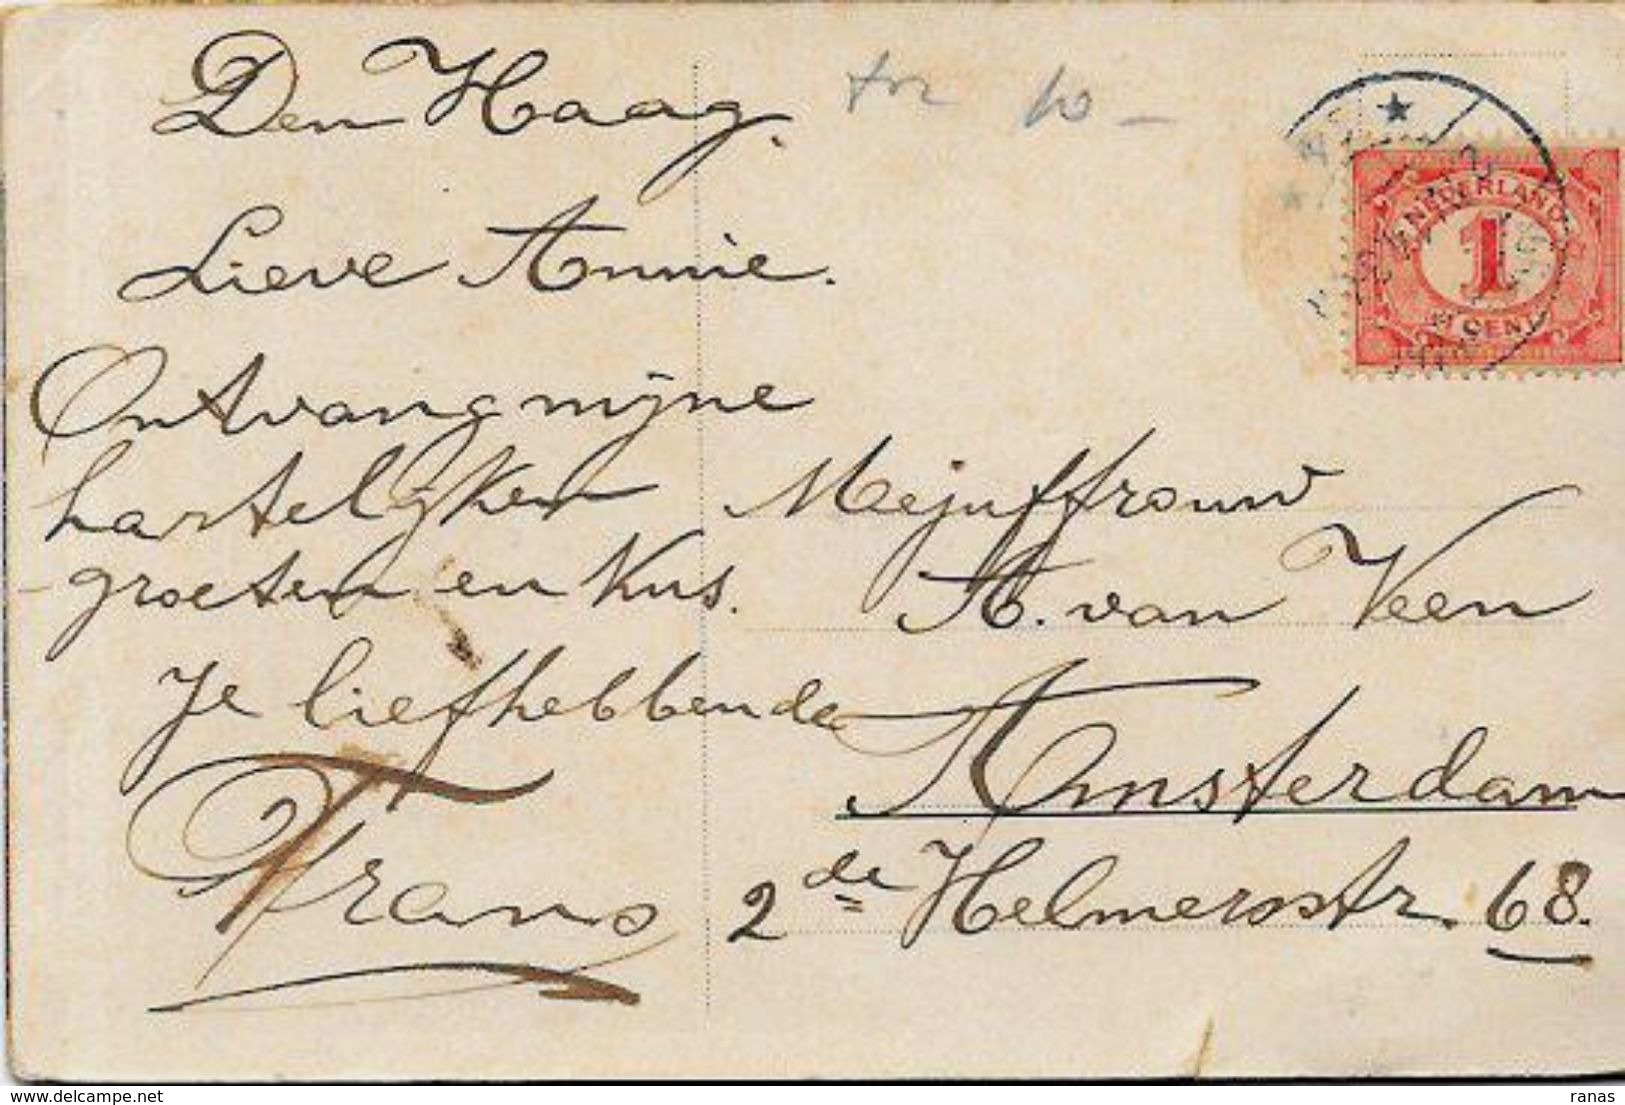 Den Haag.
Lieve Annie.
Ontvang mijne
hartelijken
groeten en kus.
Je liefhebbende
Frans
10 -
NEDERLAND
1
CENT
Mejuffrouw
A. van Veen
Amsterdam
2de Helmersstr. 68.
www.delcampe.net
ranas